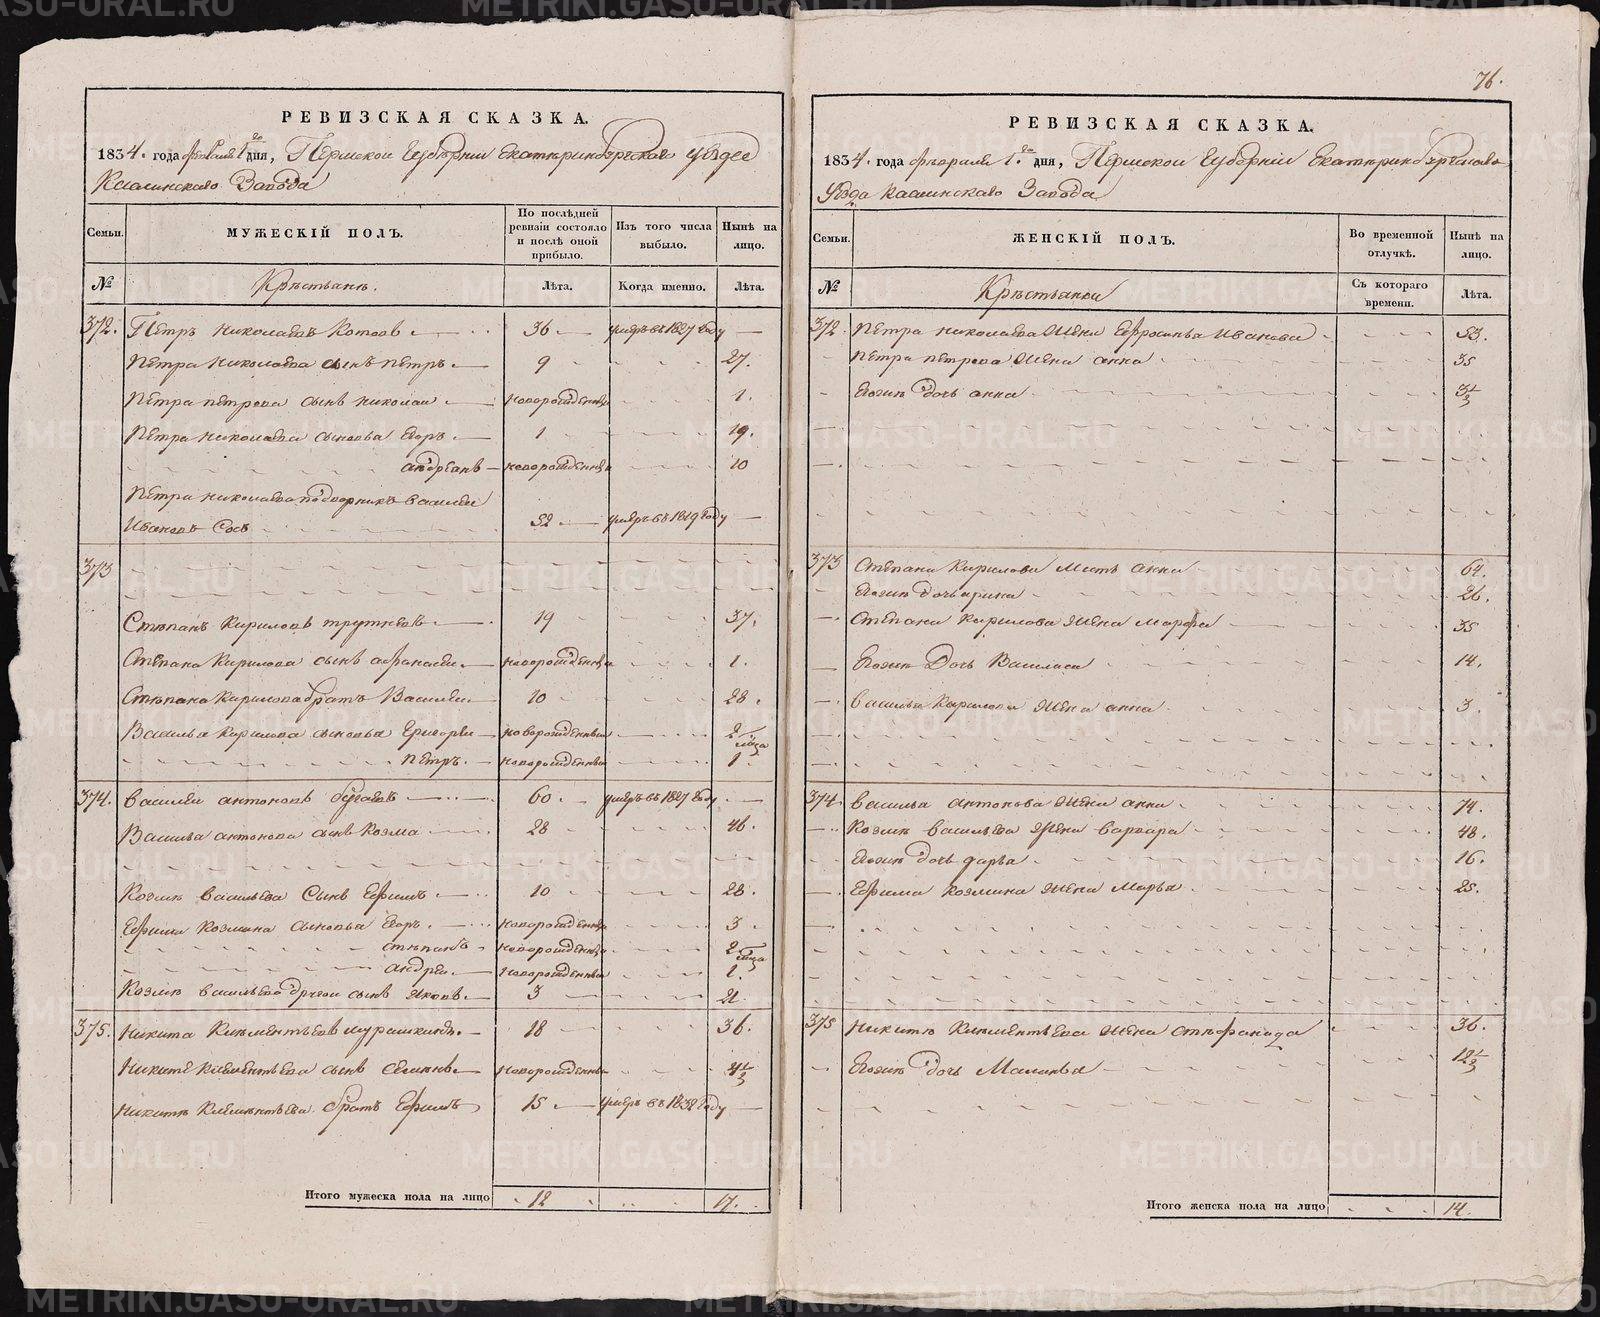 РЕВИЗСКАЯ СКАЗКА.
1834. года февраля 1го дня, Пермской Губернии Екатеринбургскаго уезда
Каслинскаго Завода
Семьи.
МУЖЕСКІЙ ПОЛЪ.
По послѣдней ревизіи состояло и послѣ оной прибыло.
Изъ того числа выбыло.
Нынѣ на лицо.
№
Крестьяне.
Лѣта.
Когда именно.
Лѣта.
372. Петръ Николаевъ 36 умеръ въ 1827 году
Петра Николаева сынъ Петръ 9 27.
Петра Петрова сынъ Николай новорожденный 1.
Петра Николаева сыновья Егоръ 1 19.
андреянъ новорожденный 10
Петра Николаева подворникъ Василей
Ивановъ 52 умеръ въ 1819 году
373
Степанъ Кириловъ Трутневъ 19 37.
Степана Кирилова сынъ афанасей новорожденный 1.
Степана Кирилова братъ Василей 10 28.
Василья Кирилова сыновья Григорей новорожденный 2/мца
Петръ новорожденный 1
374. Василей антоновъ бугаевъ 60 умеръ въ 1827 году
Василья антонова сынъ Козма 28 46.
Козмы Васильева Сынъ Ефимъ 10 28.
Ефима Козмина сыновья Егоръ новорожденный 3.
степанъ новорожденный 2/мца
андрей новорожденный 1.
Козмы Васильева другой сынъ Яковъ 3 21.
375. Никита Клементьевъ Мурашкинъ 18 36.
Никиты Клементьева сынъ Семенъ новорожденный 4 1/2
Никиты Клементьева братъ Ефимъ 15 умеръ въ 1832 году
Итого мужеска пола на лицо 12 17.
76.
РЕВИЗСКАЯ СКАЗКА.
1834. года февраля 1го дня, Пермской Губерніи Екатеринбургскаго
Уезда Каслинскаго Завода
Семьи.
ЖЕНСКІЙ ПОЛЪ.
Во временной отлучкѣ.
Нынѣ на лицо.
№
Крестьянки
Съ котораго времени.
Лѣта.
372. Петра Николаева Жена Ефросинья Иванова 53.
Петра Петрова Жена анна 35
Егоже дочь анна 3 1/2
373 Степана Кирилова Мать анна 64.
Егоже дочь арина 26.
Степана Кирилова Жена Марфа 35
Егоже Дочь Василиса 14.
Василья Кирилова Жена анна 3.
374. Василья антонова Жена анна 74.
Козмы Васильева Жена Варвара 48.
Егоже дочь дарья 16.
Ефима Козмина Жена Марья 25.
375 Никиты Клементьева Жена Стефанида 36.
Егоже дочь Маланья 12 1/2
Итого женска пола на лицо 14.
METRIKI.GASO-URAL.RU